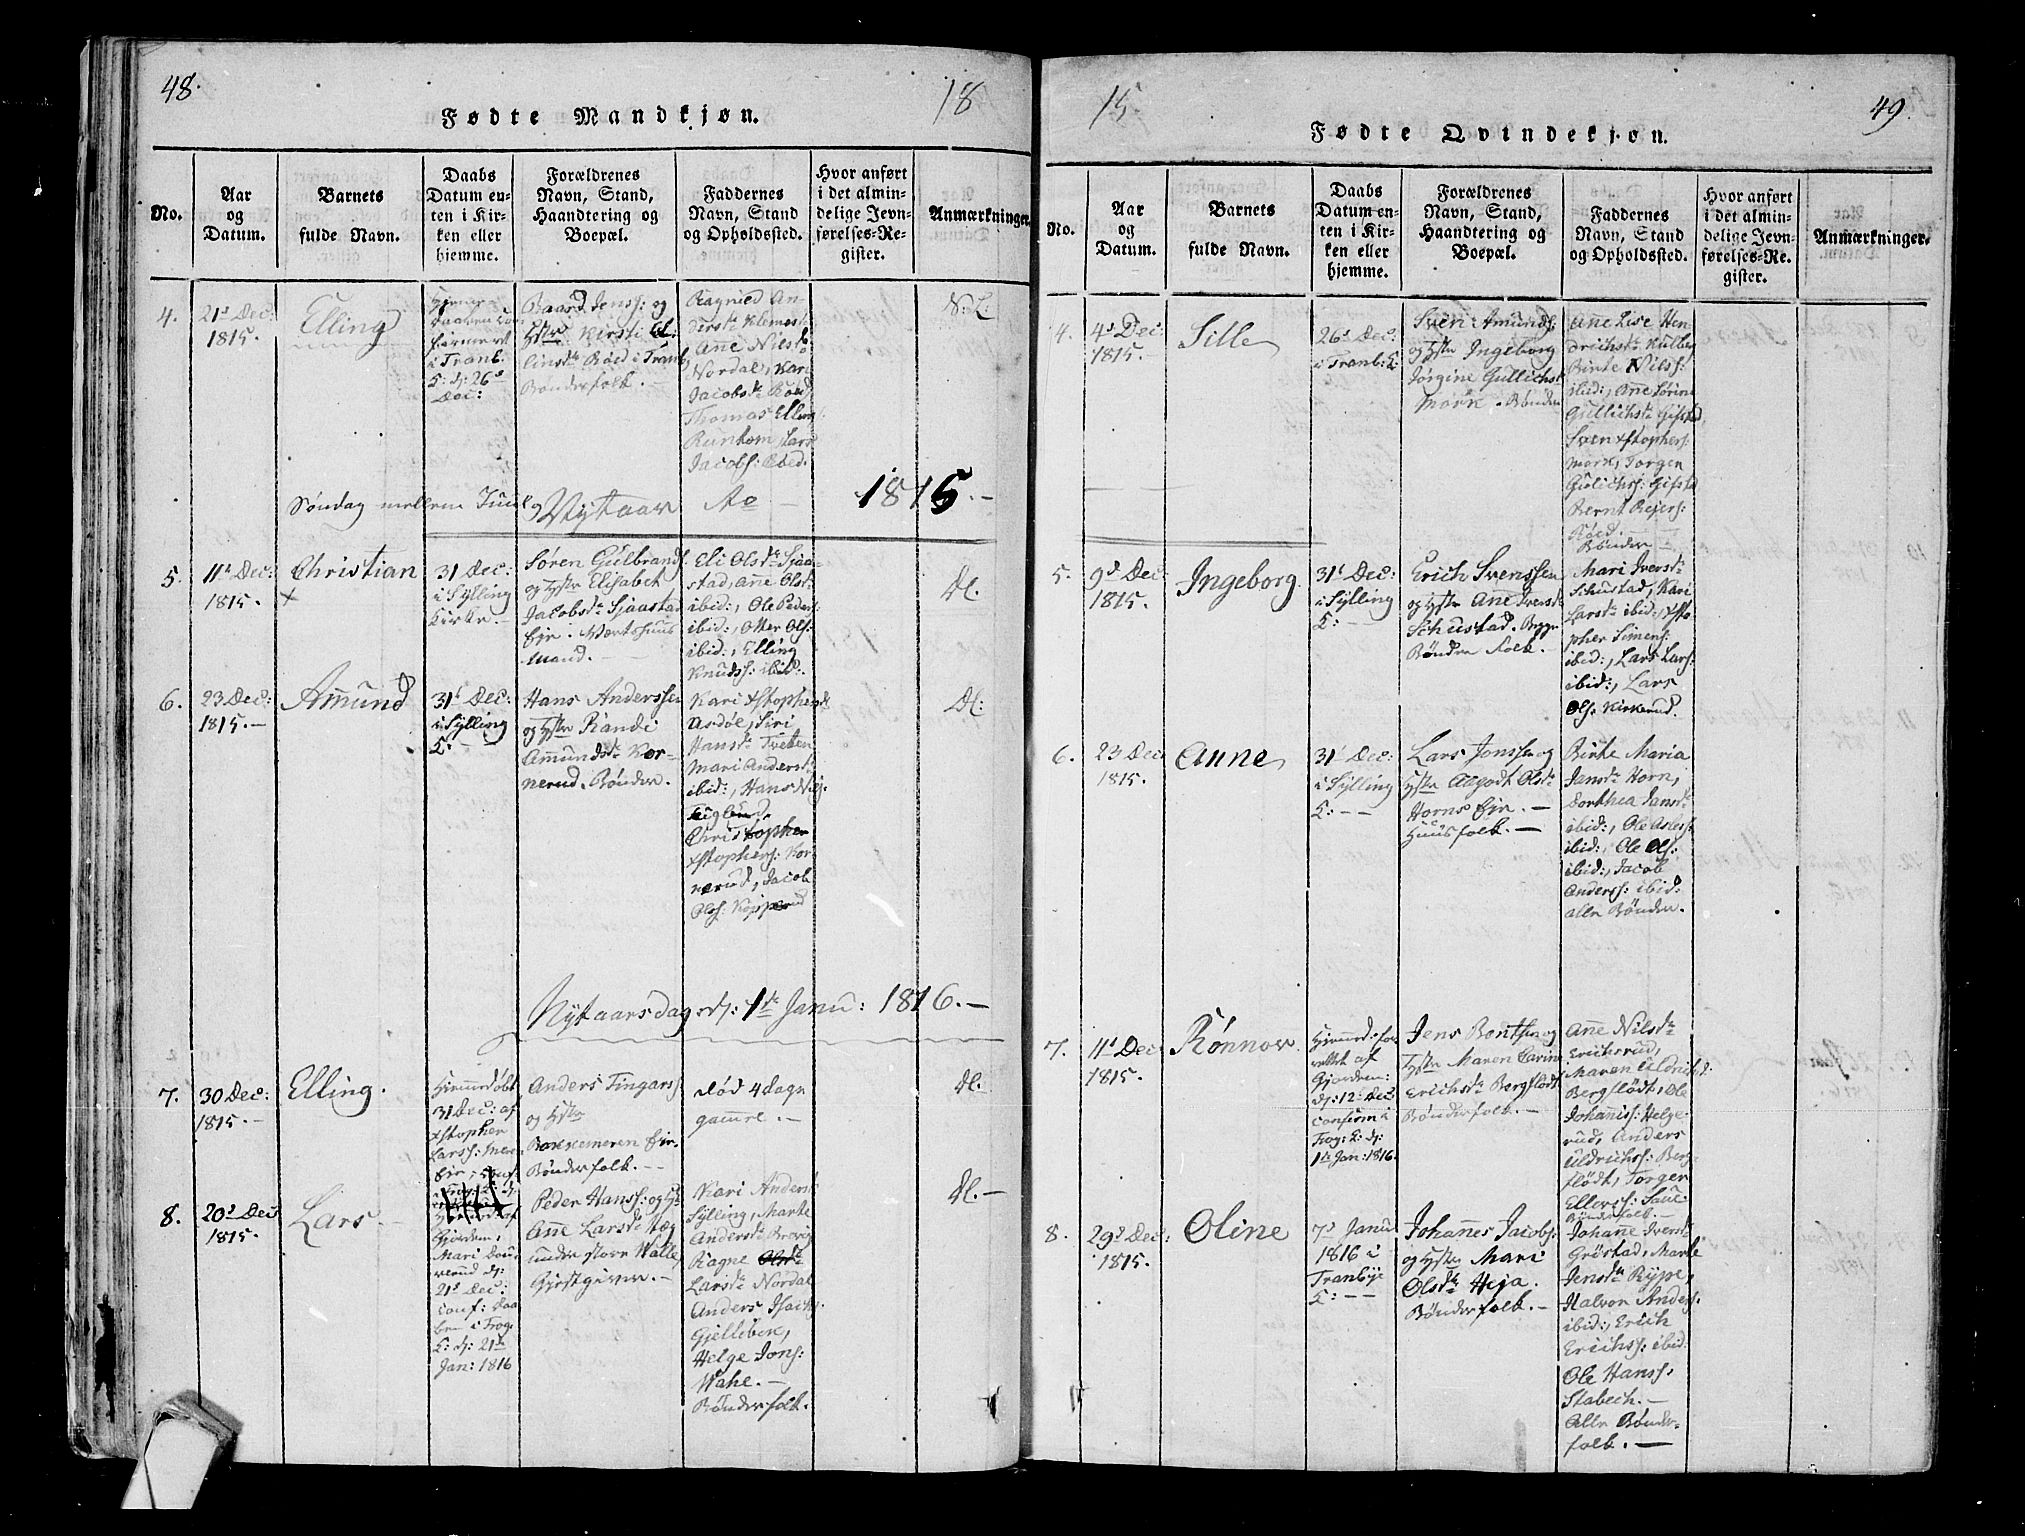 48.
18
Fødte Mandkjøn.
No.
Aar
og
Datum.
Barnets
fulde Navn.
Daabs
Datum en-
ten i Kir-
ken eller
hjemme.
Forældrenes
Navn, Stand,
Haandtering og
Boepæl.
Faddernes
Navn, Stand
og Opholdssted.
Hvor anført
i det almin-
delige Jevn-
førelses-Re-
gister.
Anmærkninger.
4.
21d Dec:
1815.
Elling
i Tranb:
K: d: 26d
Dec:
Baard Jenss: og
Hstr Kirsti El-
linsdr Røed i Tranb:
Bønderfolk. —
Ragnied An-
dersdr Klemest
Anne Nilsdr
Nordal, Kari
Jacobsdr Røed,
Thomas Elling
Runtom, Lars
Jacobs: Ebed.
N. L:
Søndag mellem Juul og Nytaar Ao — 1815. —
5.
11d Dec:
1815.
Christian
+
31 Dec:
i Sylling
Kirke. —
Søren Gulbrands:
og Hstr Elisabeth
Jacobsdr Sjaastad
Eje. Værtshuus
Mand. —
Eli Olsdr Sjaa-
stad, Ane Olsdr
ibid:, Ole Peders:
ibid:, Otter Ols:
ibid:, Elling
Knudss: ibid:
Dl.
6.
23 Dec:
1815. —
Amund
31d Dec:
i Sylling
K: —
Hans Anderssen
og Hstr Randi
Amundsdr Kor-
nerud. Bønder.
Kari xstophersdr
Asdøl, Siri
Hansdr Tveten
Mari Andersdr
ibid:, Hans Nij-
Christopher
xstophers: Kor-
nerud, Jacob
Ols: Kopperud
Dl:
Nytaarsdag d: 1ste Janu: 1816. —
7.
30 Dec:
1815. —
Elling.
Hiemmedøbt
31 Dec: af
xstopher
Larss:
Eje. Conf.
Anders Fingarss:
og Hstr
Eje.
Bønderfolk. —
død 4 dage
gamre. —
Dl.
8.
20d Dec
1815.
Lars. —
Gjordem:
Mari
d:
21d Dec:
conf: Daa-
ben i Frog:
K: d: 21de
Jan: 1816
Peder Hanss: og H:
Anne Larsdr
under store Valle
Gjestgiver. —
Kari Andersdr
Sylling, Marte
Andersdr
Ragne Olsdr
Larsdr Nordal
Anders Isachs:
Gjelleben,
Helge Jons:
Wahe. —
Bønderfolk.
Dl. —
15
49.
Fødte Qvindekjøn.
No.
Aar
og
Datum.
Barnets
fulde Navn.
Daabs
Datum en-
ten i Kir-
ken eller
hjemme.
Forældrenes
Navn, Stand,
Haandtering og
Boepæl.
Faddernes
Navn, Stand
og Opholdssted.
Hvor anført
i det almin-
delige Jevn-
førelses-Re-
gister.
Anmærkninger.
4.
4d Dec:
1815.
Sille
26d Dec:
i Tranb: K
Sven Amunds:
og Hstr Ingeborg
Jørgine Gullichsdr
Mørk. Bønder
Anne Lise Hen-
drichsdr
Birte Nilss:
ibid:, Anne Sørine
Gullichsdr Gifstad
Sven xstophers:
Mørk, Torgen
Gulichss: Gifstad
Bernt Rejers:
Røed.
Bønder —
5.
9d Dec:
1815.
Ingeborg.
31d Dec:
i Sylling
K: —
Erich Svenssen
og Hstr Ane Iversdr
Schustad. Bygn
Bønderfolk.
Mari Iversdr
Schustad, Kari
Larsdr ibid:, xsto-
pher Simens:
ibid:, Lars Lars:
ibid:, Lars
Ols: Kirkerud.
6.
23 Dec
1815.
Anne
31d Dec:
i Sylling
K: — —
Lars Jonssen og
Hstr Aagodt Olsdr
Horns Eje. —
Huusfolk. —
Birte Maria
Jensdr Horn,
Dorthea Jansdr
ibid:, Ole Asless:
ibid:, Ole Ols:
ibid:, Jacob
Anderss: ibid:
alle Bønder.
7.
11d Dec
1815.
Rønnov.
Hjemmed: for-
rettet af
Gjordem:
d: 12: Dec
confirm: i
Frog: K: d:
1ste Jan: 1816.
Jens Bentsen og
Hstr Maren Carine
Erichsdr Bergflødt
Bønderfolk. —
Anne Nilsdr
Erichsrud,
Maren Uldrichs:
Bergflødt, Ole
Johaniss: Helge-
rud, Anders
Uldrichss: Berg-
flødt, Torger
Ellerss:
Bønderfolk. —
8.
29d Dec:
1815.
Oline
7d Janu:
1816 i
Tranbye
K: — —
Johannes Jacobs:
og Hstr Mari
Olsdr Heja.
Bønderfolk. —
Johanne Iversdr
Grøstad, Marte
Jensdr Rype,
Halvor Anders:
ibid:, Erich
Erichss: ibid:
Ole Hanss:
Stabech. —
Alle Bønder-
folk. —